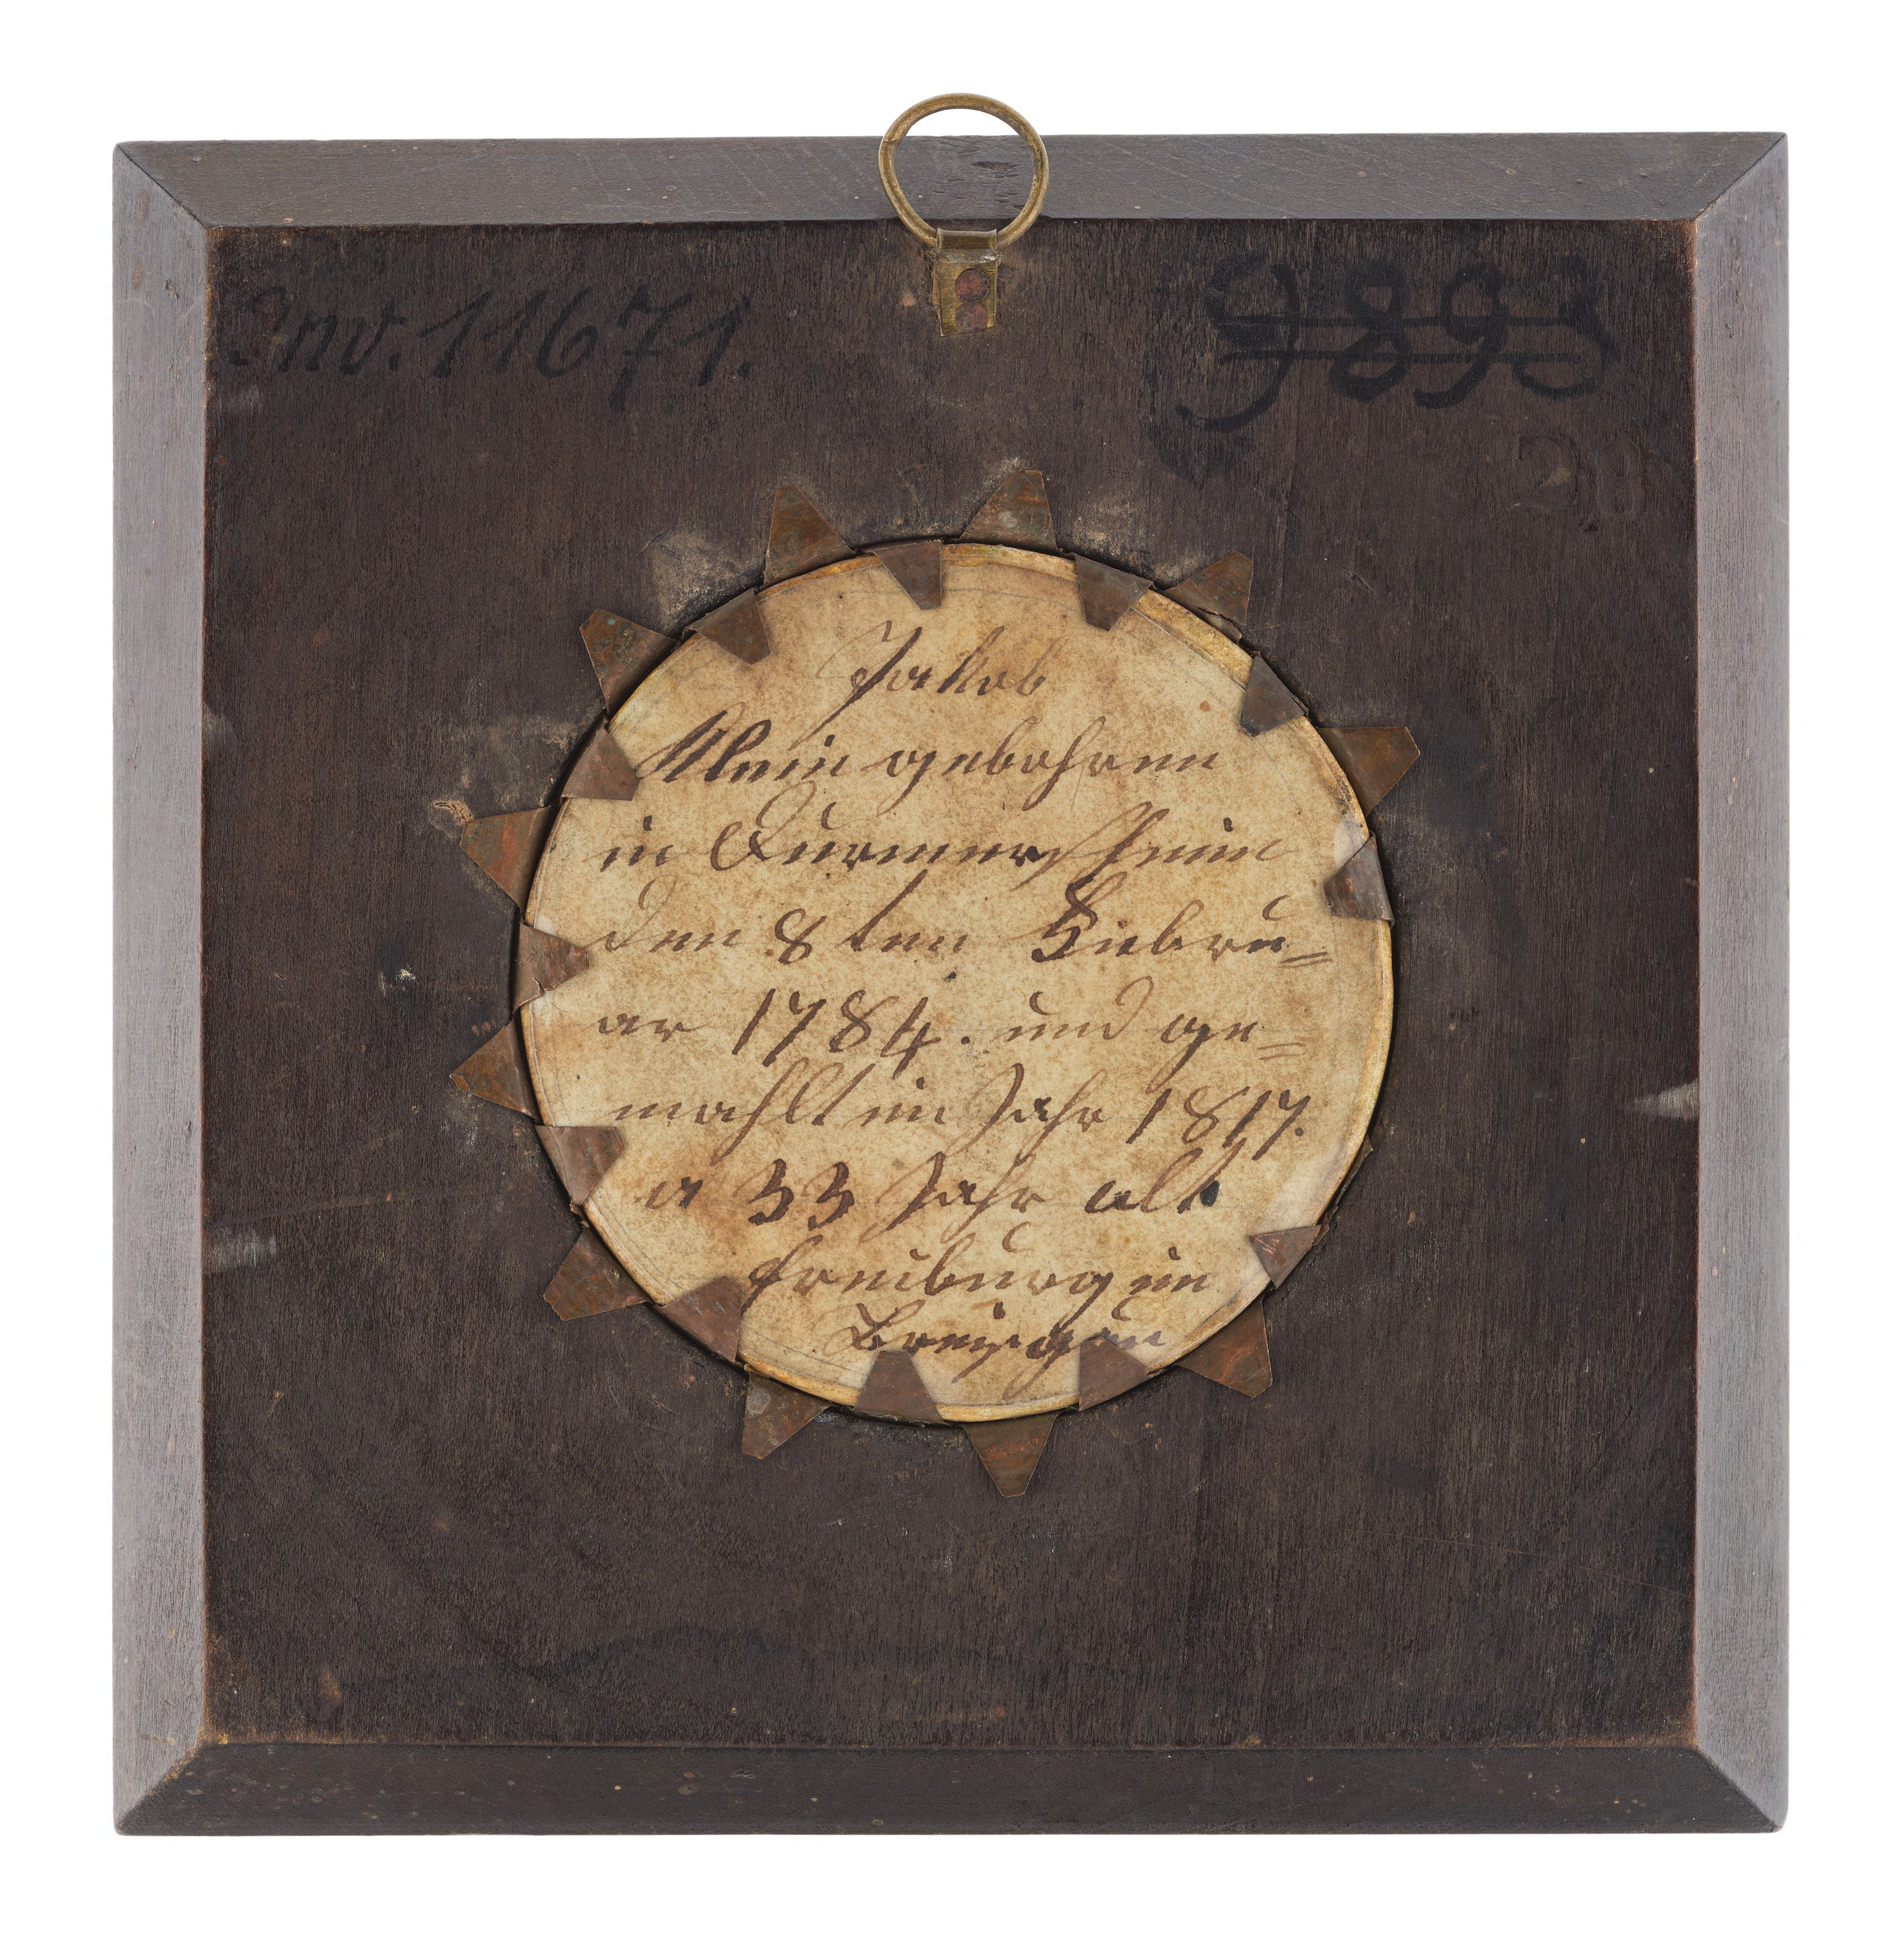 Inv. 11671.
9893
28
Jakob
Klein gebohren
in Durmersheim
den 8ten Febru=
ar 1784. und ge=
mahlt im Jahr 1817.
a 33 Jahr alt
Freiburg im
Breisgau